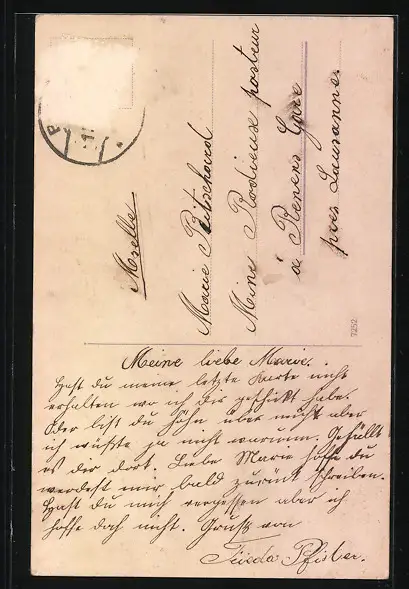 Mselle
Marie Bitschard
Mme Rodieuse posteur
à Renens Gare
près Lausanne.
7252
Meine liebe Marie.
Hast du meine letzte Karte nicht
erhalten wo ich dir geschikt habe.
Oder bist du höhn über mich aber
ich wüßte ja nicht warumm. Gefällt
es dir dort. Liebe Marie hoffe du
werdest mir bald zurück schreiben.
Hast du mich vergessen aber ich
hoffe doch nicht. Gruß von
Frieda Pfister.